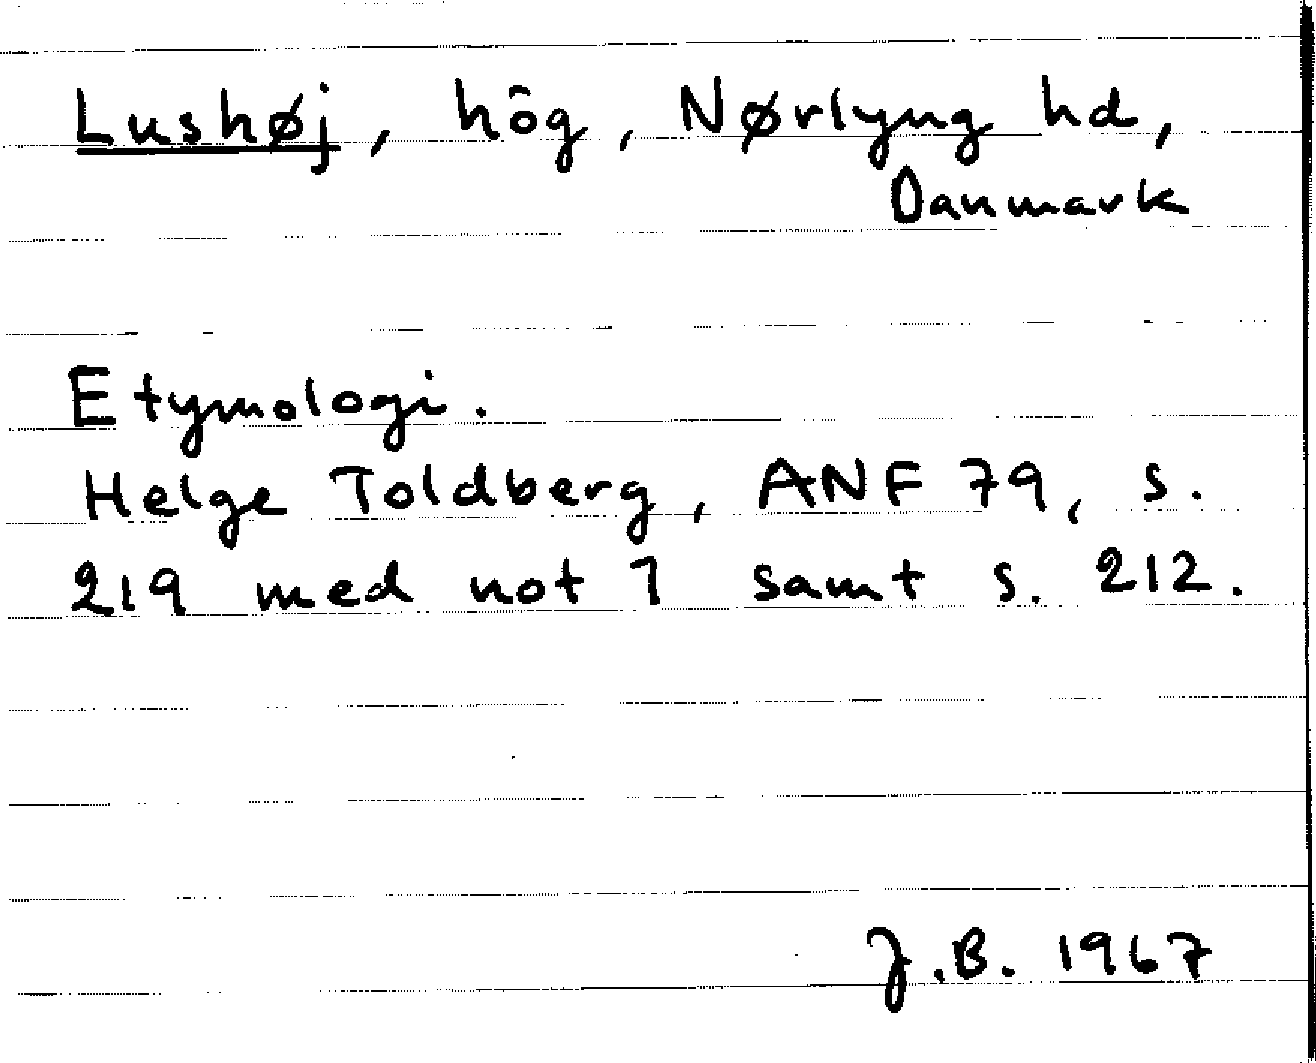 Lushøj, hög, Nørlyng hd,
Danmark
Etymologi.
Helge Toldberg, ANF 79, s.
219 med not 1 samt s. 212.
J.B. 1967